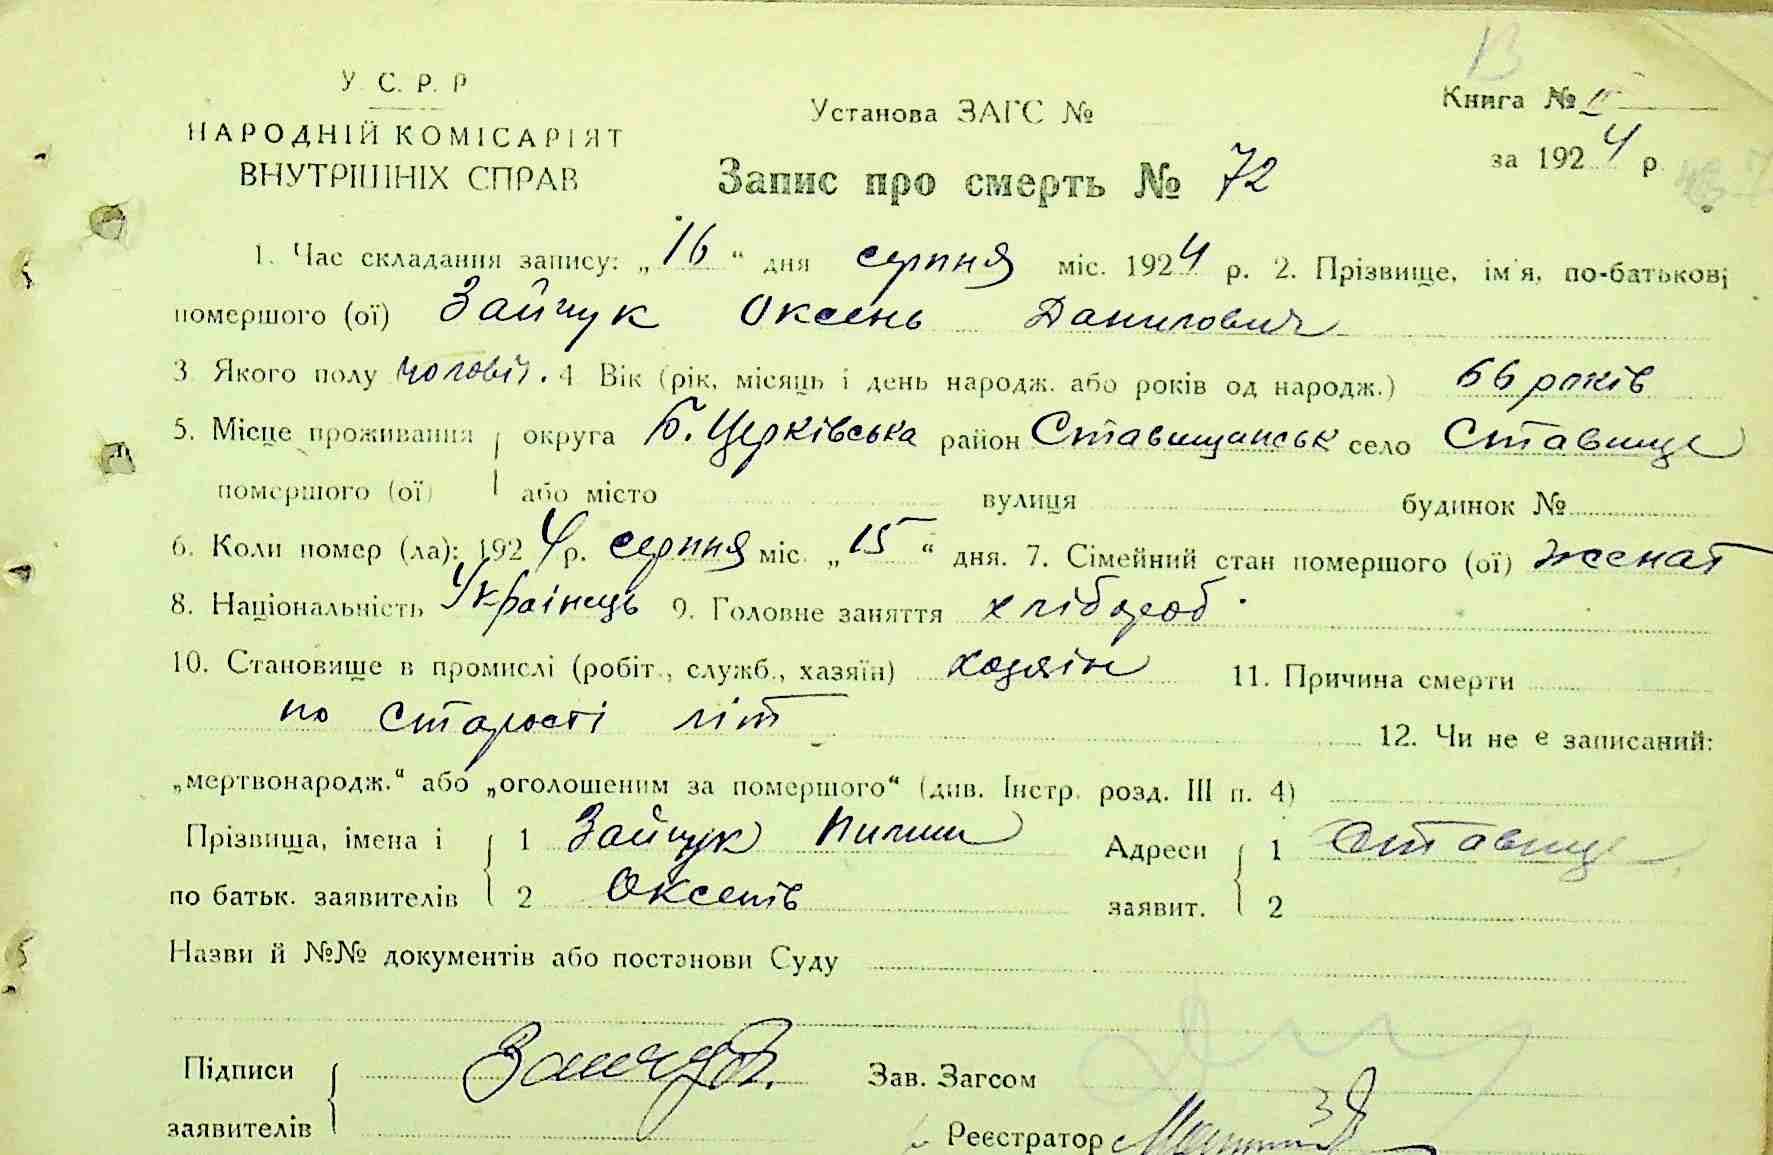 У. С. Р. Р
НАРОДНІЙ КОМІСАРІЯТ
ВНУТРІШНІХ СПРАВ
Установа ЗАГС №
Книга № II
за 1924 р.
Запис про смерть № 72
1. Час складання запису: „16“ дня серпня міс. 1924 р. 2. Прізвище, ім'я, по-батькові
помершого (ої) Зайчук Оксень Данилович
3. Якого полу чоловіч. 4. Вік (рік, місяць і день народж. або років од народж.) 66 років
5. Місце проживання округа Б. Церківська район Ставищанськ село Ставище
помершого (ої) або місто вулиця будинок №
6. Коли помер (ла): 1924 р. серпня міс. „15“ дня. 7. Сімейний стан помершого (ої) женат
8. Національність Українець 9. Головне заняття хлібороб.
10. Становище в промислі (робіт., служб., хазяїн) хазяін 11. Причина смерти
по старості літ
12. Чи не є записаний:
„мертвонародж.“ або „оголошеним за помершого“ (див. Інстр. розд. III п. 4)
Прізвища, імена і 1 Зайчук Пилип Адреси 1 Ставище
по батьк. заявителів 2 Оксентів заявит. 2
Назви й №№ документів або постанови Суду
Підписи Зайчук Зав. Загсом
заявителів Реєстратор